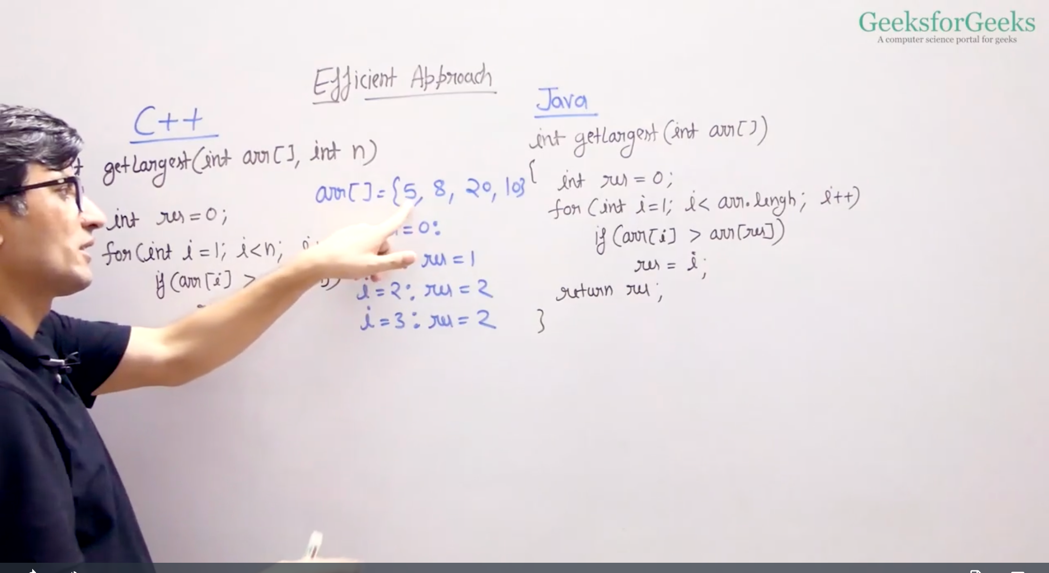 GeeksforGeeks
A computer science portal for geeks
Efficient Approach
C++
getLargest(int arr[], int n)
int res=0;
for(int i=1; i<n; i
if(arr[i] >
arr[]={5, 8, 20, 10}
=0:
res=1
i=2: res=2
i=3: res=2
Java
int getLargest(int arr[])
{
int res=0;
for(int i=1; i< arr.lengh; i++)
if(arr[i] > arr[res])
res = i;
return res;
}